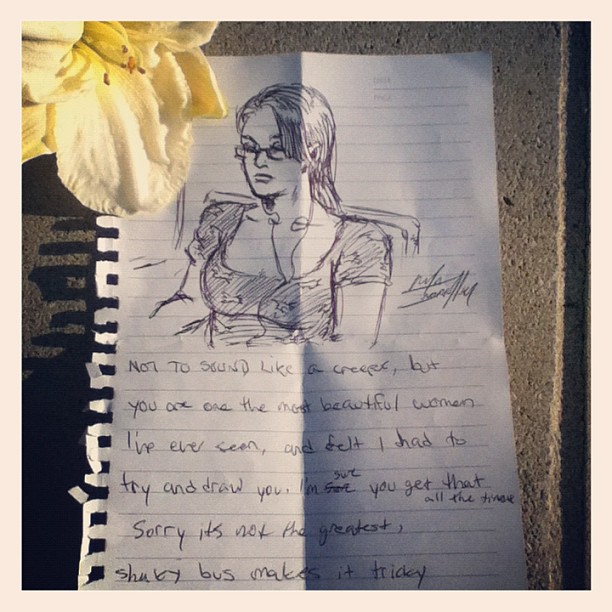 NOT TO SOUND Like a creeper, but
you are one the most beautiful women
I've ever seen, and felt I had to
try and draw you. I'm sure you get that
all the time
Sorry its not the greatest,
shaky bus makes it tricky